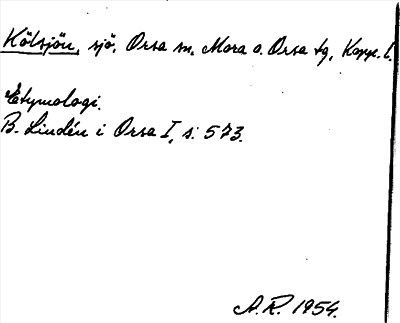 Hölsjön, sjö, Orsa sn, Mora o. Orsa tg, Kopp. l.
Etymologi.
B. Lindén i Orsa I, s. 573.
A.R. 1954.